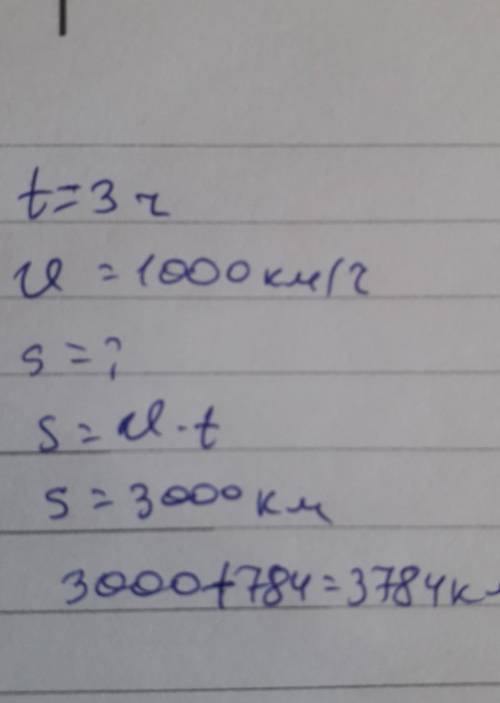 t=3 ч
v = 1000 км/ч
s = ?
s = v · t
s = 3000 км
3000+784=3784к